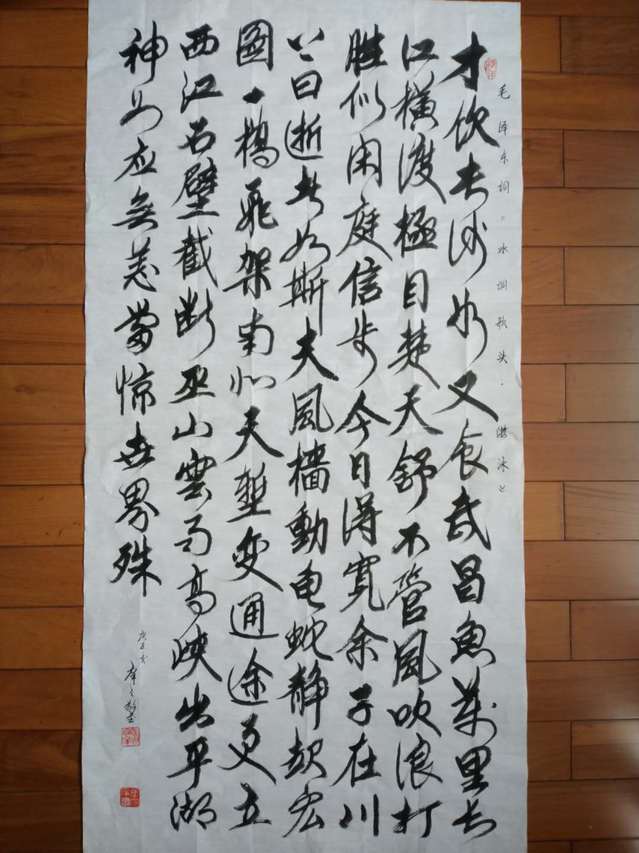 毛泽东词。水调歌头·游泳
才饮长沙水又食武昌魚萬里长
江橫渡極目楚天舒不管風吹浪打
胜似闲庭信步今日得寬余子在川
上曰逝者如斯夫風檣動龟蛇静起宏
圖一橋飛架南北天塹变通途更立
西江石壁截断巫山雲雨高峡出平湖
神女应無恙當惊世界殊
庚子